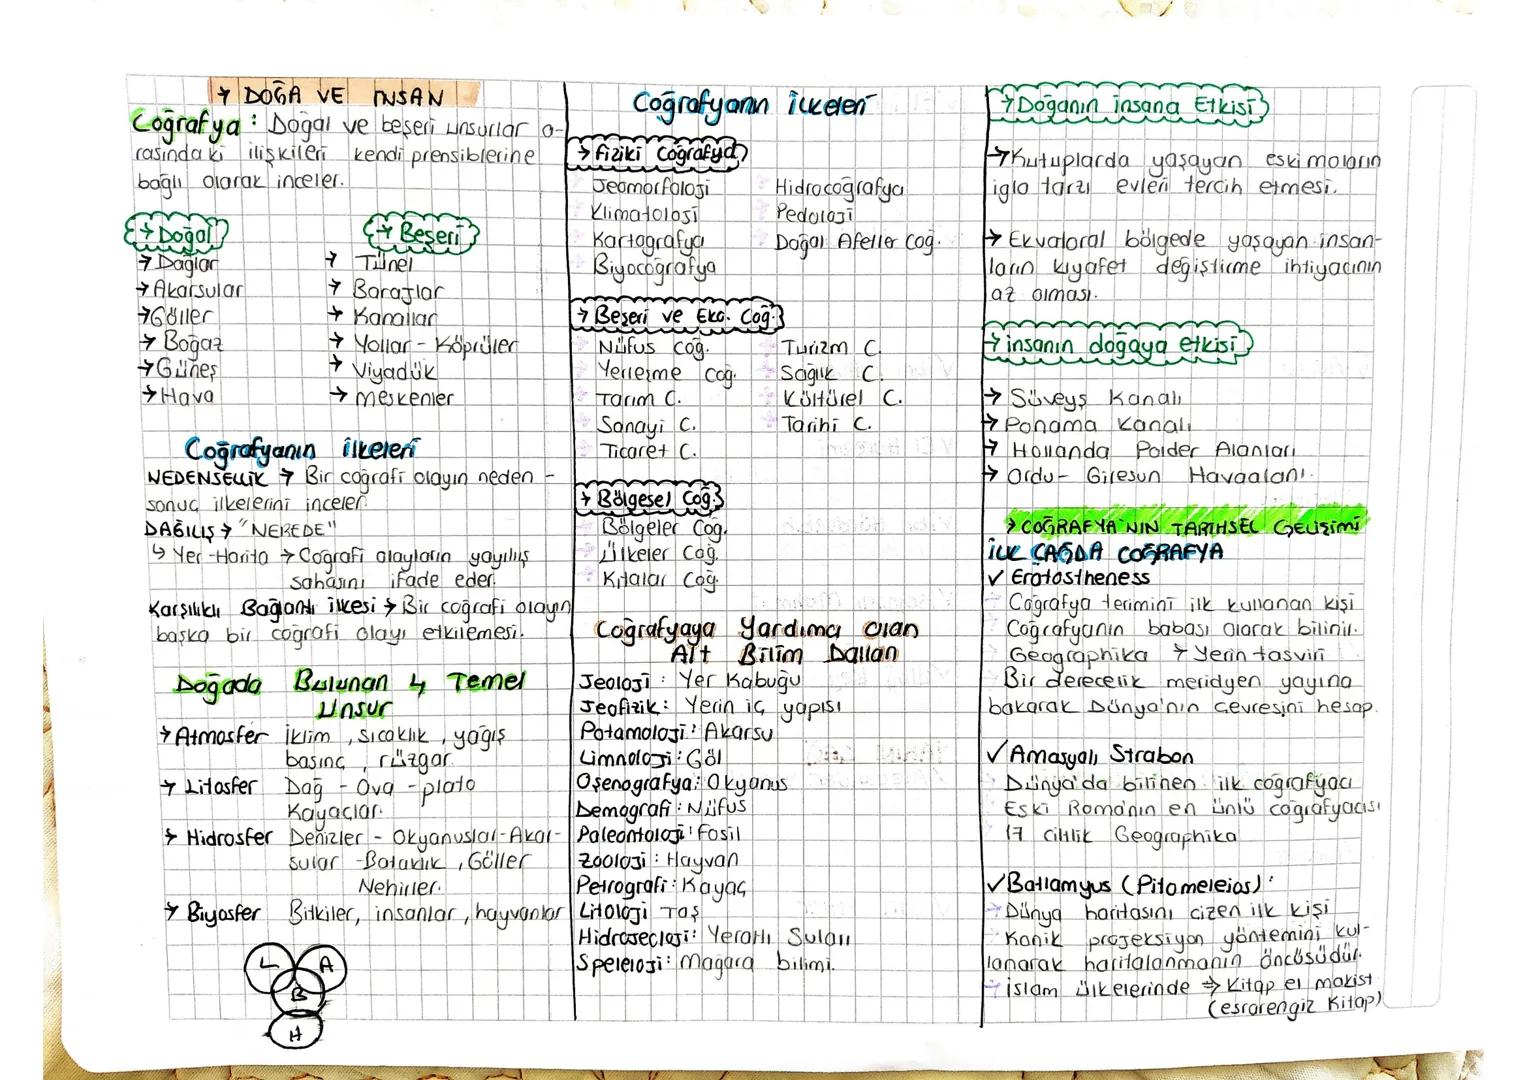 → DOĞA VE İNSAN
Coğrafya : Doğal ve beşeri unsurlar a-
rasındaki ilişkileri kendi prensiblerine
bağlı olarak inceler.
→ Doğal
→ Dağlar
→ Akarsular
→ Göller
→ Boğaz
→ Güneş
→ Hava
→ Beşeri
→ Tünel
→ Barajlar
→ Kanallar
→ Yollar - Köprüler
→ Viyadük
→ meskenler
Coğrafyanın ilkeleri
NEDENSELLİK → Bir coğrafi olayın neden -
sonuç ilkelerini inceler.
DAĞILIŞ → "NEREDE"
↳ Yer-Harita → Coğrafi olayların yayılış
sahasını ifade eder.
Karşılıklı Bağlantı ilkesi → Bir coğrafi olayın
başka bir coğrafi olayı etkilemesi.
Doğada Bulunan 4 Temel
Unsur
→ Atmosfer İklim, sıcaklık, yağış
basınç, rüzgar.
→ Litosfer Dağ - Ova - plato
Kayaçlar.
→ Hidrosfer Denizler - Okyanuslar-Akar-
sular - Bataklık, Göller
Nehirler.
→ Biyosfer Bitkiler, insanlar, hayvanlar
L A
B
H
Coğrafyanın ilkeleri
→ fiziki Coğrafya
Jeomorfoloji
Klimatoloji
Kartografya
Biyocoğrafya
Hidrocoğrafya
Pedoloji
Doğal Afetler Coğ.
→ Beşeri ve Eko. Coğ.
Nüfus Coğ.
Yerleşme Coğ.
Tarım C.
Sanayi C.
Ticaret C.
Turizm C.
Sağlık C.
Kültürel C.
Tarihi C.
→ Bölgesel Coğ.
Bölgeler Coğ.
Ülkeler Coğ.
Kıtalar Coğ.
Coğrafyaya Yardımcı Olan
Alt Bilim Dalları
Jeoloji : Yer Kabuğu
Jeofizik : Yerin iç yapısı
Potamoloji : Akarsu
Limnoloji : Göl
Oşenografya : Okyanus
Demografi : Nüfus
Paleontoloji : Fosil
Zooloji : Hayvan
Petrografi : Kayaç
Litoloji Taş
Hidrojeoloji : Yeraltı Suları
Speleloji : Mağara bilimi.
→ Doğanın insana Etkisi
→ Kutuplarda yaşayan eskimoların
iglo tarzı evleri tercih etmesi.
→ Ekvatoral bölgede yaşayan insan-
ların kıyafet değiştirme ihtiyacının
az olması.
→ insanın doğaya etkisi
→ Süveyş Kanalı
→ Panama Kanalı
→ Hollanda Polder Alanları
→ Ordu - Giresun Havaalanı.
→ COĞRAFYA'NIN TARİHSEL GELİŞİMİ
İLK ÇAĞDA COĞRAFYA
✓ Eratostheness
Coğrafya terimini ilk kullanan kişi
Coğrafyanın babası olarak bilinir.
Geographika → Yerin tasviri
Bir derecelik meridyen yayına
bakarak Dünya'nın çevresini hesap.
✓ Amasyalı Strabon
Dünya'da bilinen ilk coğrafyacı
Eski Roma'nın en ünlü coğrafyacısı
17 ciltlik Geographika
✓ Batlamyus (Pitomeleios) :
→ Dünya haritasını çizen ilk kişi
Konik projeksiyon yöntemini kul-
lanarak haritalanmanın öncüsüdür.
→ İslam ülkelerinde ⇒ Kitap el macist
(esrarengiz Kitap)